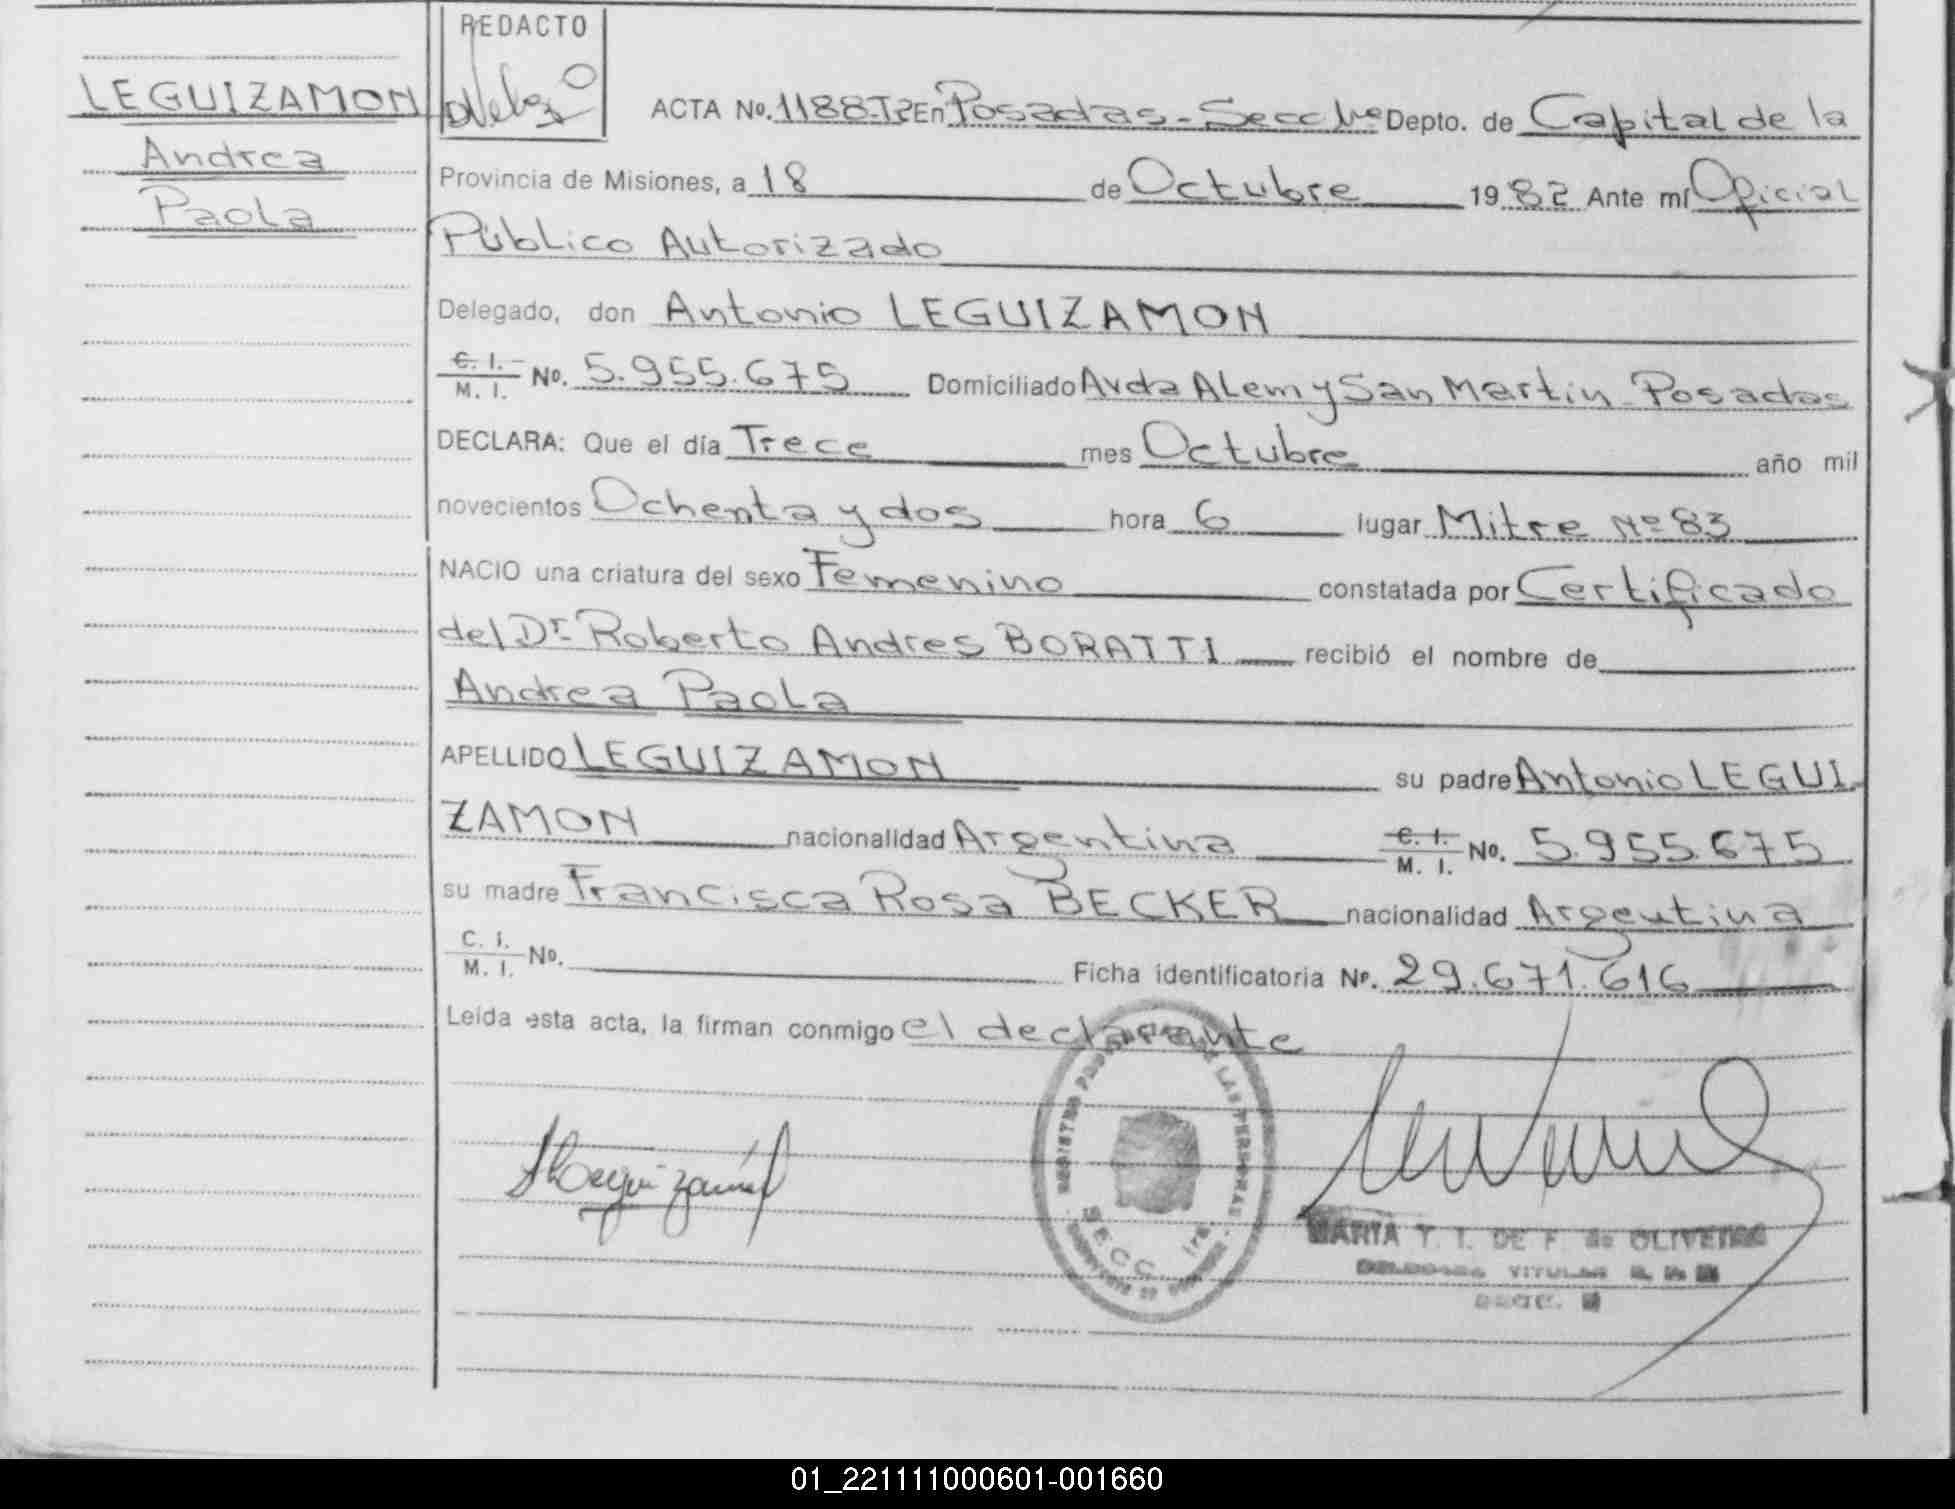 LEGUIZAMON
Andrea
Paola
REDACTO
ACTA No. 1188-T2 En Posadas - Secc 1ra Depto. de Capital de la
Provincia de Misiones, a 18 de Octubre 1982 Ante mí Oficial
Público Autorizado
Delegado, don Antonio LEGUIZAMON
C. I. M. I. No. 5.955.675 Domiciliado Avda ALem y San Martin - Posadas
DECLARA: Que el día Trece mes Octubre año mil
novecientos Ochenta y dos hora 6 lugar Mitre Nº 83
NACIO una criatura del sexo Femenino constatada por Certificado
del Dr Roberto Andres BORATTI recibió el nombre de
Andrea Paola
APELLIDO LEGUIZAMON su padre Antonio LEGUI
ZAMON nacionalidad Argentina C. I. M. I. No. 5.955.675
su madre Francisca Rosa BECKER nacionalidad Argentina
C. I. M. I. No. Ficha identificatoria Nº. 29.671.616
Leída esta acta, la firman conmigo el declarante
REGISTRO LAS PERSONAS
SECC. 1ra.
MARTA T. I. DE F. de OLIVEIRA
DELEGADA TITULAR
SECC.
01_221111000601-001660